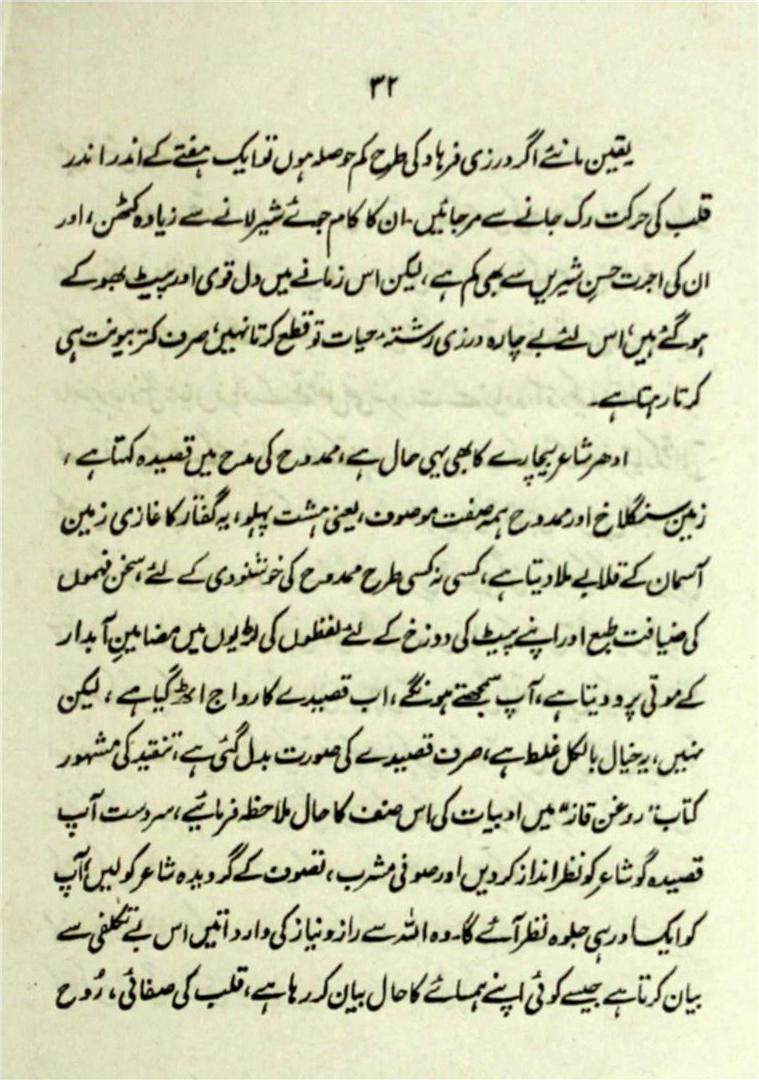 ۳۲
یقین مانئے اگر درزی فرہاد کی طرح کم حوصلہ ہوں تو ایک ہفتے کے اندر اندر
قلب کی حرکت رک جانے سے مرجائیں۔ ان کا کام جوئے شیر لانے سے زیادہ کٹھن، اور
ان کی اجرت حسنِ شیریں سے بھی کم ہے، لیکن اس زمانے میں دل قوی اور پیٹ بھوکے
ہوگئے ہیں، اس لئے بے چارہ درزی رشتۂ حیات تو قطع کرتا نہیں، صرف کتر بیونت ہی
کرتا رہتا ہے۔
ادھر شاعر بیچارے کا بھی یہی حال ہے، ممدوح کی مدح میں قصیدہ کہتا ہے،
زمین سنگلاخ اور ممدوح ہمہ صفت موصوف، یعنی ہشت پہلو، یہ گفتار کا غازی زمین
آسمان کے قلابے ملا دیتا ہے، کسی نہ کسی طرح ممدوح کی خوشنودی کے لئے، سخن فہموں
کی ضیافت طبع اور اپنے پیٹ کی دوزخ کے لئے لفظوں کی لڑیوں میں مضامینِ آبدار
کے موتی پرو دیتا ہے، آپ سمجھتے ہونگے، اب قصیدے کا رواج اٹھ گیا ہے، لیکن
نہیں، یہ خیال بالکل غلط ہے، صرف قصیدے کی صورت بدل گئی ہے، تنقید کی مشہور
کتاب "روغن قاز" میں ادبیات کی اس صنف کا حال ملاحظہ فرمائیے، سردست آپ
قصیدہ گو شاعر کو نظر انداز کر دیں اور صوفی مشرب، تصوف کے گرویدہ شاعر کو لیں، آپ
کو ایک اور ہی جلوہ نظر آئے گا۔ وہ اللہ سے راز و نیاز کی وارداتیں اس بے تکلفی سے
بیان کرتا ہے جیسے کوئی اپنے ہمسائے کا حال بیان کر رہا ہے، قلب کی صفائی، رُوح